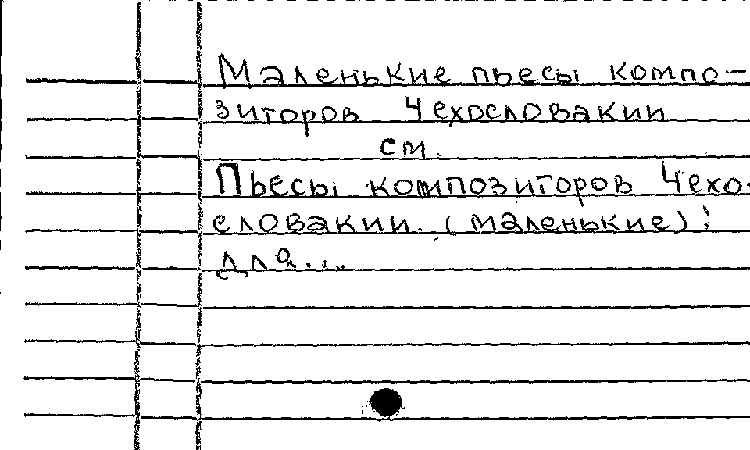 Маленькие пьесы компо-
зиторов Чехословакии
см.
Пьесы композиторов Чехо-
словакии. (маленькие):
для...